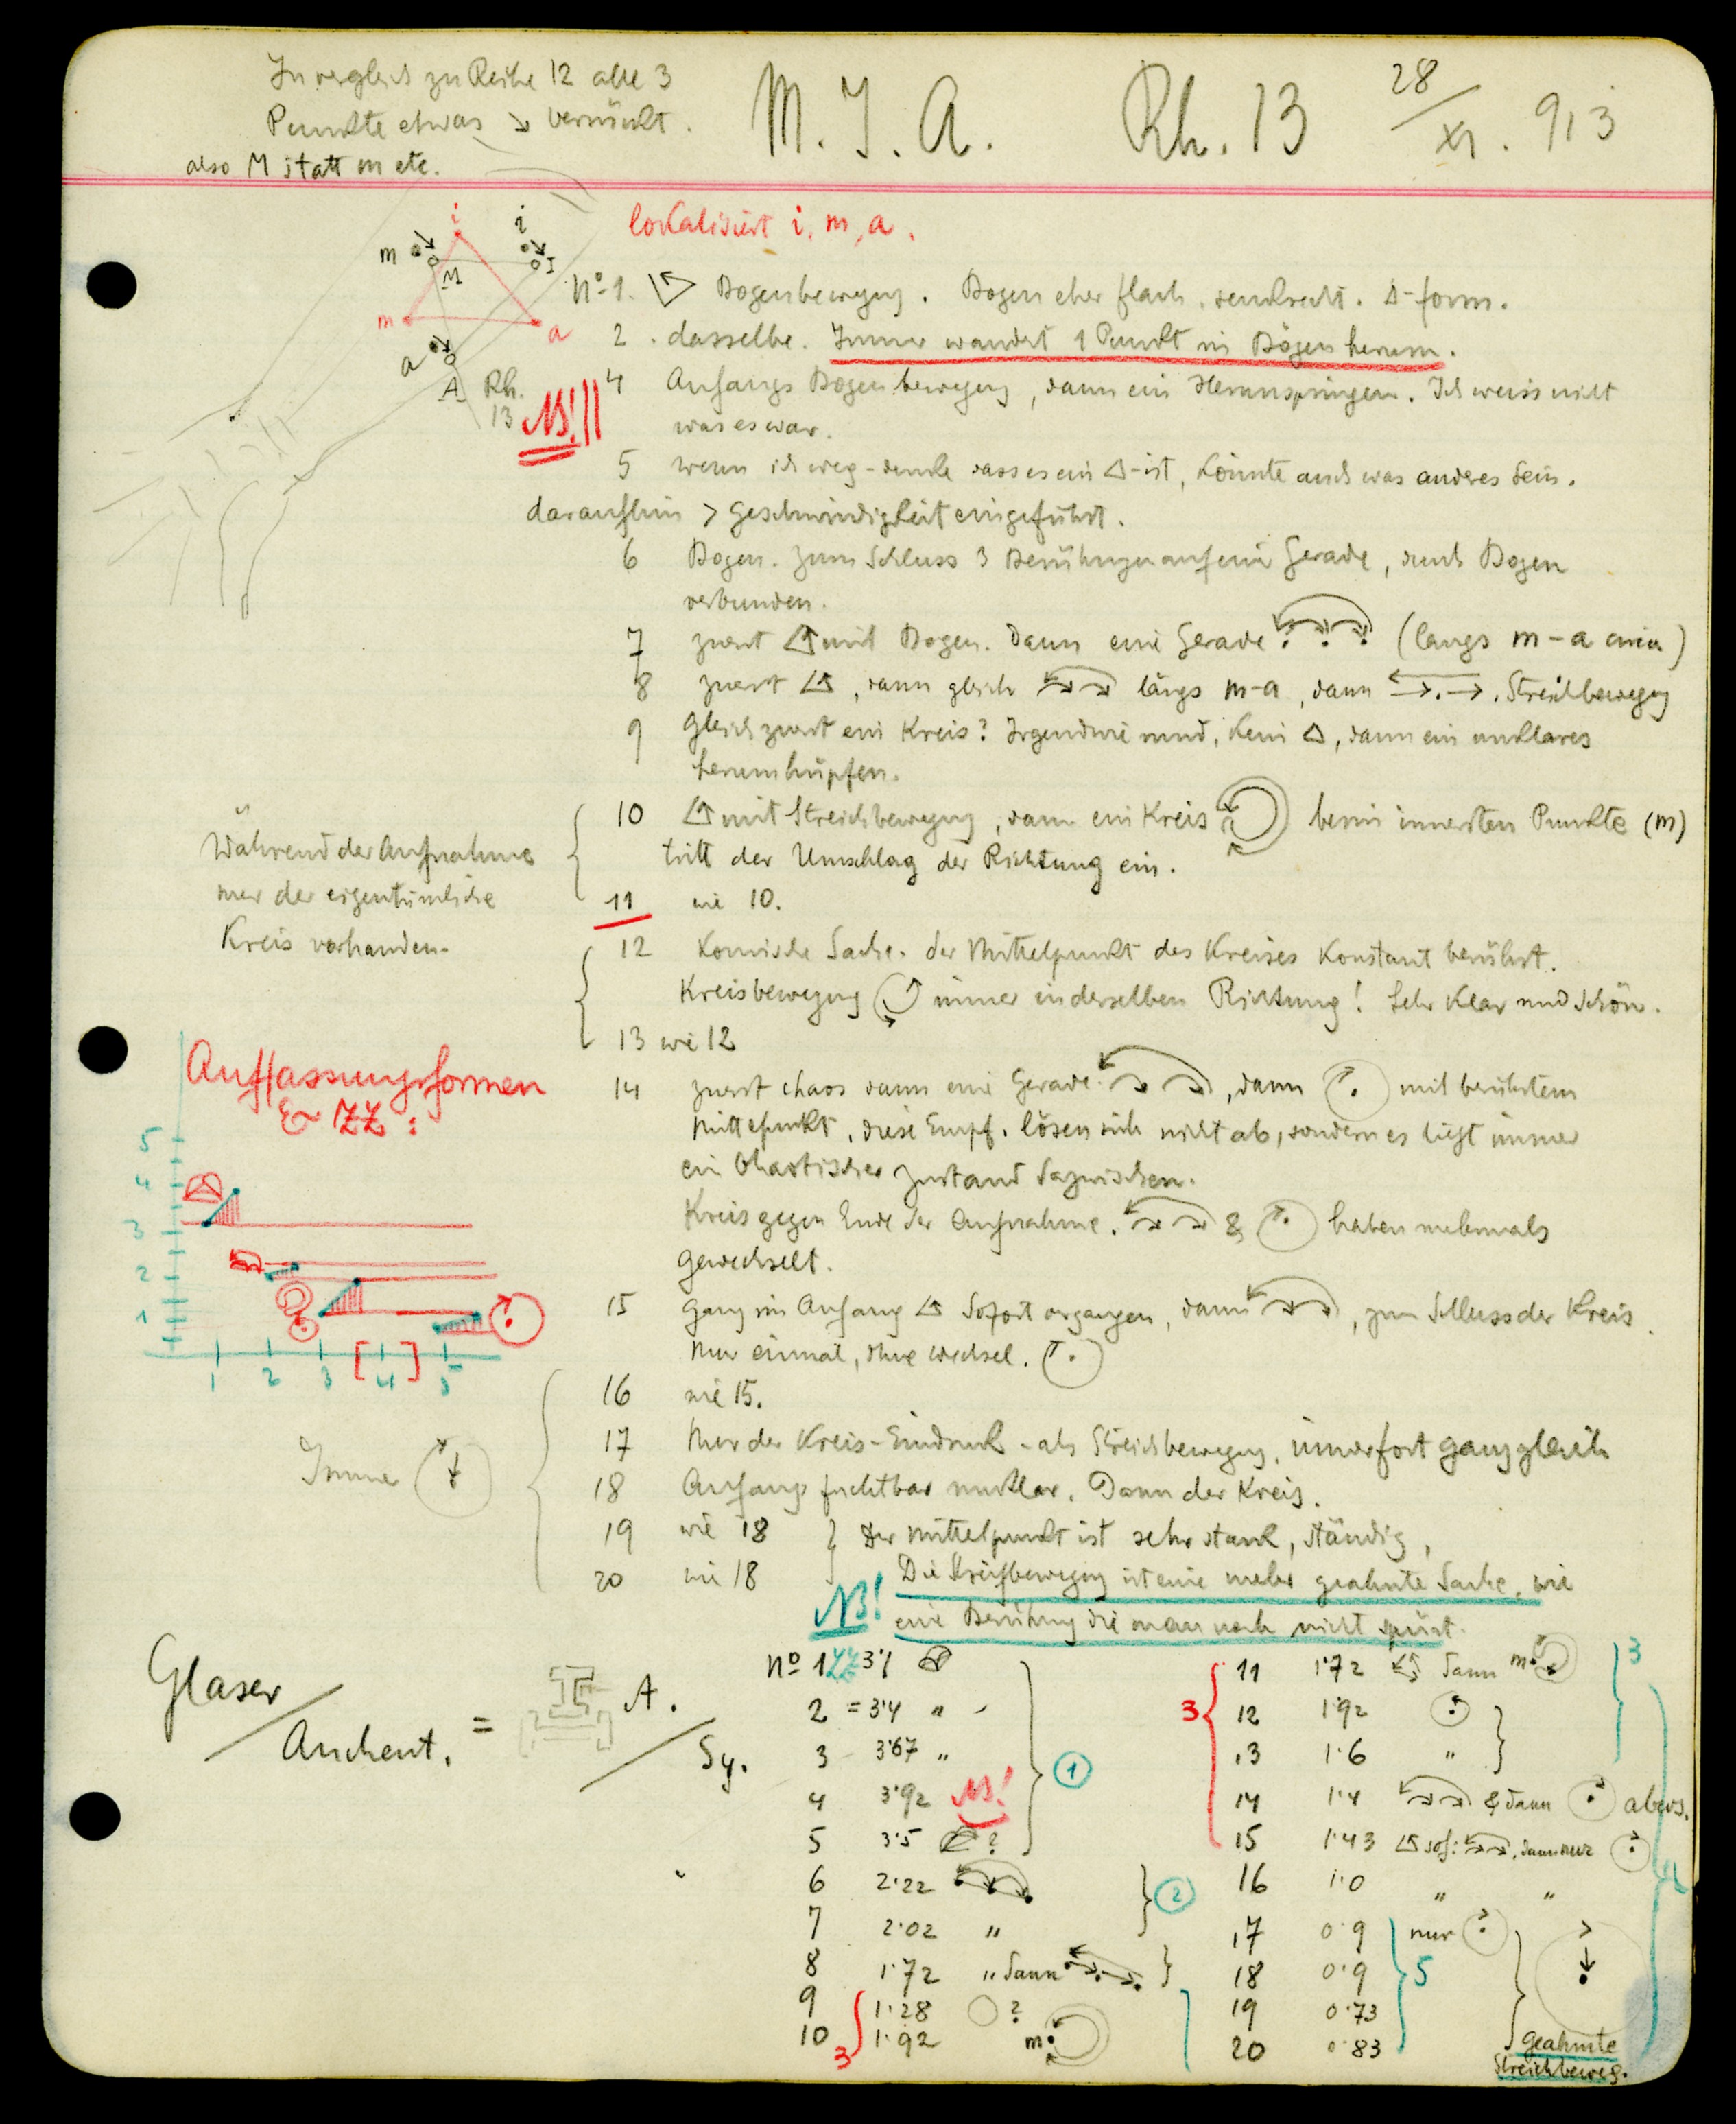 In vergleich zu Reihe 12 alle 3
Punkte etwas ↘ verrückt.
also M statt m etc.
M. J. A. Rh. 13 28/XI. 913
lokalisiert i, m, a.
i
i
m
M
I
m
a
a
A
Rh.
13
NB!
No 1. Bogenbewegung. Bogen eher flach, senkrecht. Δ-form.
2. dasselbe. Immer wandert 1 Punkt in Bögen herum.
4 Anfangs Bogenbewegung, dann ein Herumspringen. Ich weiss nicht
was es war.
5 wenn ich weg-denke dass es ein Δ-ist, könnte auch was anderes sein.
daraufhin > Geschwindigkeit eingeführt.
6 Bogen. Zum Schluss 3 Berührungen auf einer Gerade, durch Bogen
verbunden.
7 zuerst Δ mit Bogen. Dann eine Gerade (längs m-a
8 zuerst Δ, dann gleich längs m-a, dann → . → . Streichbewegung
9 Gleich zuerst ein Kreis? Irgendwie rund, kein Δ, dann ein unklares
herumhüpfen.
10 Δ mit Streichbewegung, dann ein Kreis beim innersten Punkte (m)
tritt der Umschlag der Richtung ein.
11 wie 10.
Während der Aufnahme
nur der eigentümliche
Kreis vorhanden.
12 Komische Sache. Der Mittelpunkt des Kreises konstant berührt.
Kreisbewegung immer in derselben Richtung! Sehr klar und schön.
13 wie 12
14 zuerst chaos dann eine Gerade, dann mit berührtem
Mittelpunkt, diese Empf. lösen sich nicht ab, sondern es liegt immer
ein chaotischer Zustand dazwischen.
Kreis gegen Ende der Aufnahme. & haben mehrmals
gewechselt.
15 Ganz im Anfang Δ sofort vergangen, dann, zum Schluss der Kreis.
Nur einmal, ohne Wechsel.
16 wie 15.
17 Nur der Kreis-Eindruck - als Streichbewegung, immerfort ganz gleich
18 Anfangs furchtbar unklar. Dann der Kreis.
19 wie 18 } Der Mittelpunkt ist sehr stark, ständig,
20 wie 18 Die Streichbewegung ist eine mehr geahnte Sache, wie
NB! eine Berührung die man noch nicht spürt.
Immer
Auffassungsformen
& ZZ:
5
4
3
2
1
1 2 3 [4] 5
Glaser/Anchent. = A./Sy.
No 1 ZZ 3·1
2 = 3·4 "
3 3·67 "
4 3·92 NB!
5 3·5 ?
1
6 2·22
7 2·02 "
2
8 1·72 " dann
9 1·28 ?
10 1·92 m
3
11 1·72 dann m
12 1·92
13 1·6 "
14 1·4 & dann
15 1·43 sof: , dann nur
3
3
16 1·0 " "
17 0·9 nur
18 0·9
19 0·73
20 0·83
5
geahnte
Streichbeweg.